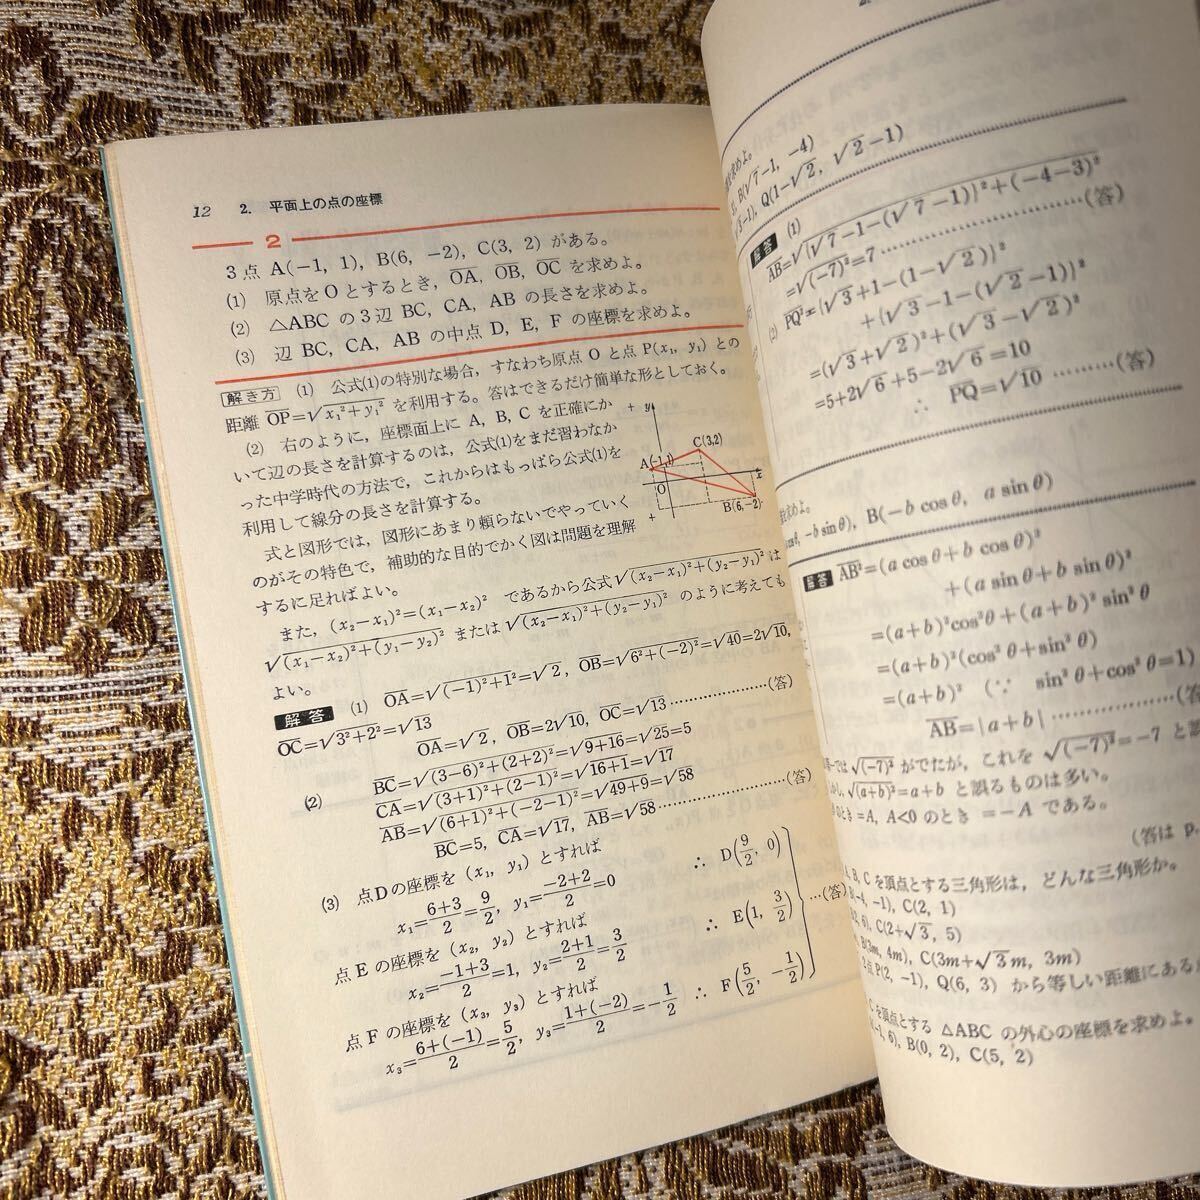 12 2. 平面上の点の座標
2
3点 A(−1, 1), B(6, −2), C(3, 2) がある。
(1) 原点をOとするとき, OA, OB, OC を求めよ。
(2) △ABC の3辺 BC, CA, AB の長さを求めよ。
(3) 辺 BC, CA, AB の中点 D, E, F の座標を求めよ。
解き方 (1) 公式(1)の特別な場合, すなわち原点 O と点 P(x₁, y₁) との
距離 OP=√x₁²+y₁² を利用する。答はできるだけ簡単な形としておく。
(2) 右のように, 座標面上に A, B, C を正確にか
いて辺の長さを計算するのは, 公式(1)をまだ習わなか
った中学時代の方法で, これからはもっぱら公式(1)を
利用して線分の長さを計算する。
式と図形では, 図形にあまり頼らないでやっていく
のがその特色で, 補助的な目的でかく図は問題を理解
するに足ればよい。
+ y
C(3,2)
A(−1,1)
O
x
+
B(6,−2)
また, (x₂−x₁)²=(x₁−x₂)² であるから公式√(x₂−x₁)²+(y₂−y₁)² は
√(x₁−x₂)²+(y₁−y₂)² または√(x₂−x₁)²+(y₂−y₁)² のように考えても
よい。
解答 (1) OA=√(−1)²+1²=√2, OB=√6²+(−2)²=√40=2√10,
OC=√3²+2²=√13
OA=√2, OB=2√10, OC=√13 ……………(答)
(2) BC=√(3−6)²+(2+2)²=√9+16=√25=5
CA=√(3+1)²+(2−1)²=√16+1=√17
AB=√(6+1)²+(−2−1)²=√49+9=√58
BC=5, CA=√17, AB=√58……………(答)
(3) 点Dの座標を (x₁, y₁) とすれば
x₁=(6+3)/2=9/2, y₁=(−2+2)/2=0 ∴ D(9/2, 0)
点 E の座標を (x₂, y₂) とすれば
x₂=(−1+3)/2=1, y₂=(2+1)/2=3/2 ∴ E(1, 3/2) …(答)
点 F の座標を (x₃, y₃) とすれば
x₃=(6+(−1))/2=5/2, y₃=(1+(−2))/2=−1/2 ∴ F(5/2, −1/2)
求めよ。
B(√7−1, −4)
Q(1−√2, √2−1)
解答 (1)
AB=√{√7−1−(√7−1)}²+(−4−3)²
=√(−7)²=7 ……………(答)
(2) PQ²={√3+1−(1−√2)}²
+{√3−1−(√2−1)}²
=(√3+√2)²+(√3−√2)²
=5+2√6+5−2√6=10
∴ PQ=√10 ………(答)
求めよ。
−b sin θ), B(−b cos θ, a sin θ)
解答 AB²=(a cos θ+b cos θ)²
+(a sin θ+b sin θ)²
=(a+b)²cos²θ+(a+b)² sin²θ
=(a+b)²(cos²θ+sin²θ)
=(a+b)² (∵ sin²θ+cos²θ=1)
AB=|a+b| ……………(答)
では √(−7)² がでたが, これを √(−7)²=−7 と
√(a+b)²=a+b と誤るものは多い。
のとき =A, A<0 のとき =−A である。
(答は p.
A, B, C を頂点とする三角形は, どんな三角形か。
B(−4, −1), C(2, 1)
6), C(2+√3, 5)
B(3m, 4m), C(3m+√3m, 3m)
2点 P(2, −1), Q(6, 3) から等しい距離にある
C を頂点とする △ABC の外心の座標を求めよ。
6), B(0, 2), C(5, 2)